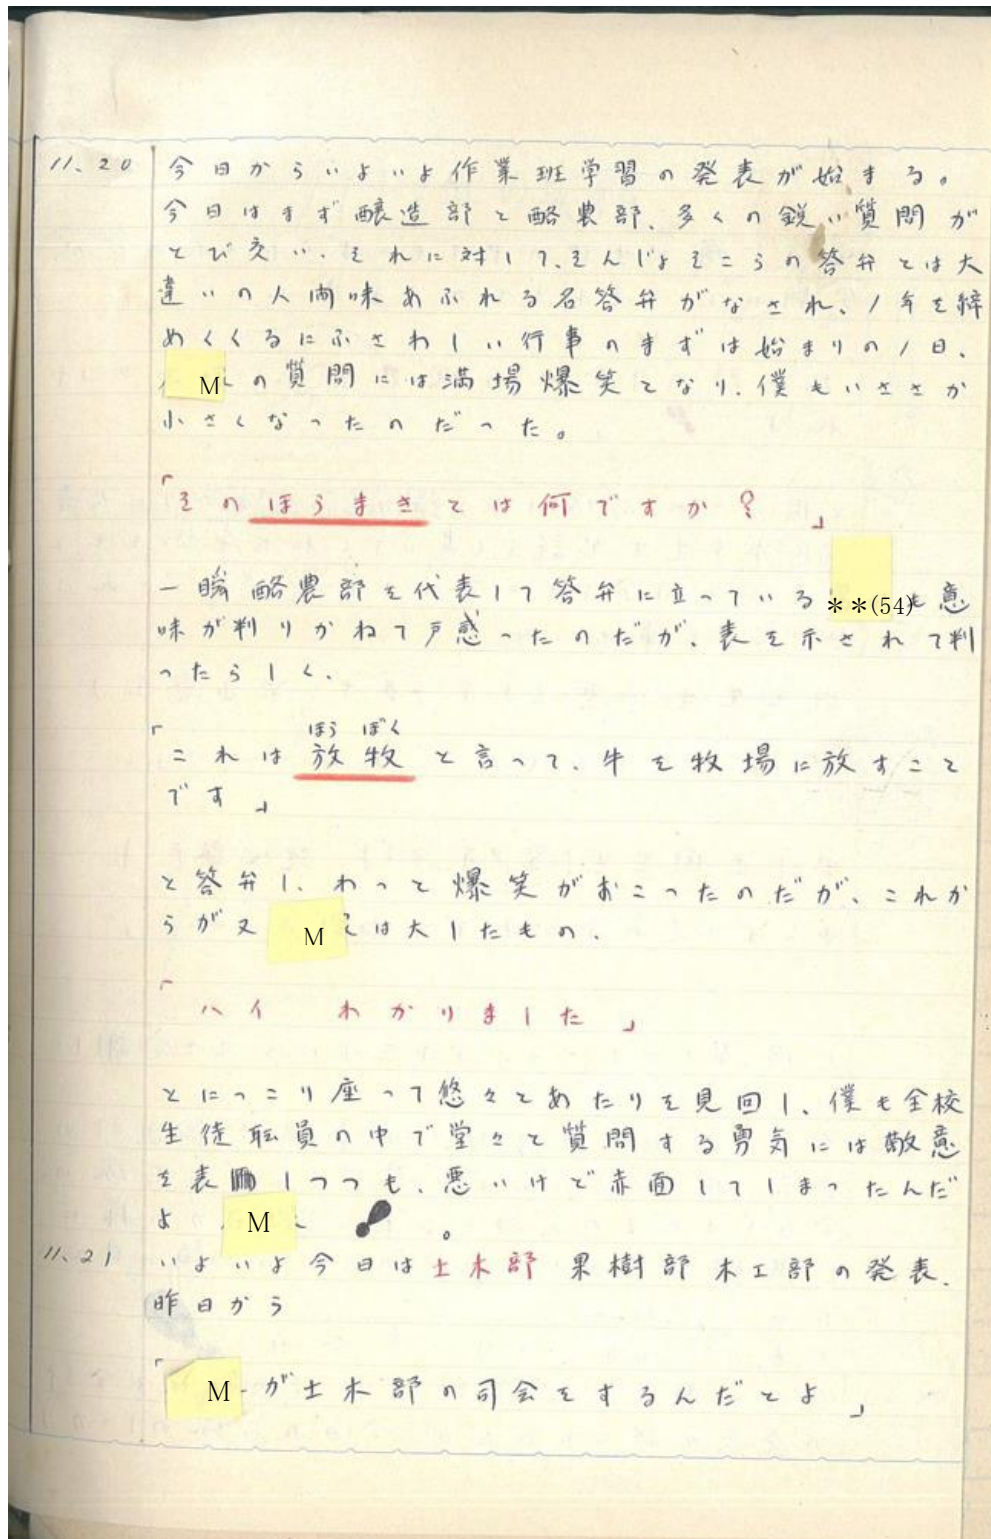 11、20 今日からいよいよ作業班学習の発表が始まる。
今日はまず醸造部と酪農部、多くの鋭い質問が
とび交い、それに対して、そんじょそこらの答弁とは大
違いの人間味あふれる名答弁がなされ、1年を締
めくくるにふさわしい行事のまずは始まりの1日、
Mの質問には満場爆笑となり、僕もいささか
小さくなったのだった。
「そのほうまきとは何ですか?」
一瞬酪農部を代表して答弁に立っている**(54)も意
味が判りかねて戸惑ったのだが、表を示されて判
ったらしく、
ほう ぼく
「これは放牧と言って、牛を牧場に放すこと
です」
と答弁し、わっと爆笑がおこったのだが、これか
らが又Mは大したもの、
「ハイ わかりました」
とにっこり座って悠々とあたりを見回し、僕も全校
生徒職員の中で堂々と質問する勇気には敬意
を表しつつも、悪いけど赤面してしまったんだ
よ M !。
11、21 いよいよ今日は土木部 果樹部 木工部の発表、
昨日から
「Mが土木部の司会をするんだとよ」